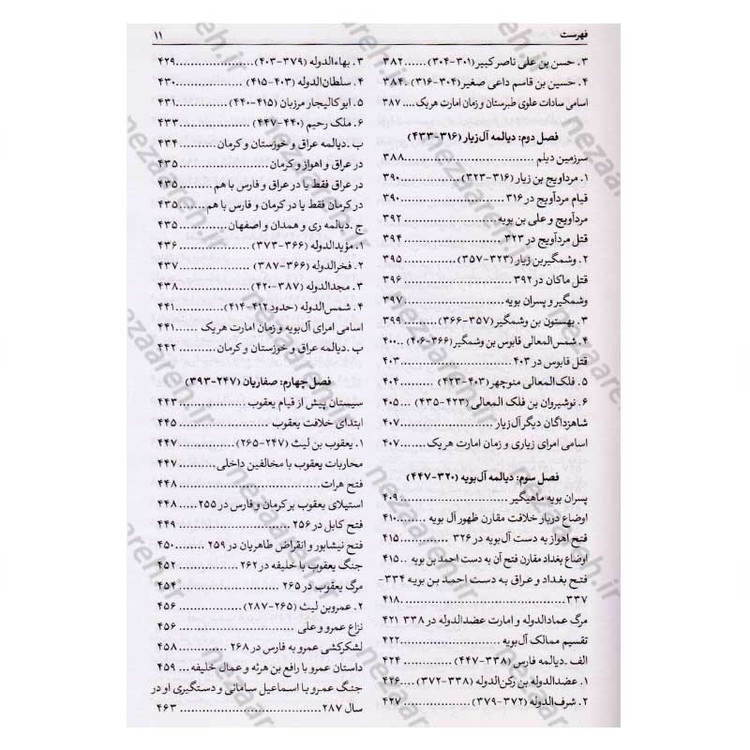 فهرست
۱۱
۳. حسن بن علی ناصر کبیر (۳۰۱-۳۰۴)......۳۸۲
۴. حسین بن قاسم داعی صغیر (۳۰۴-۳۱۶) .۳۸۴
اسامی سادات علوی طبرستان و زمان امارت هریک...۳۸۷
فصل دوم: دیالمه آل‌زیار (۳۱۶-۴۳۳)
سرزمین دیلم.......................۳۸۸
۱. مردآویج بن زیار (۳۱۶-۳۲۳)............۳۹۰
قیام مردآویج در ۳۱۶...................۳۹۰
مردآویج و علی بن بویه..................۳۹۲
قتل مردآویج در ۳۲۳...................۳۹۴
۲. وشمگیر بن زیار (۳۲۳-۳۵۷)............۳۹۵
قتل ماکان در ۳۹۲.....................۳۹۶
وشمگیر و پسران بویه...................۳۹۷
۳. بهستون بن وشمگیر (۳۵۷-۳۶۶).........۳۹۹
۴. شمس‌المعالی قابوس بن وشمگیر (۳۶۶-۴۰۶) ..۴۰۰
قتل قابوس در ۴۰۳....................۴۰۳
۵. فلک‌المعالی منوچهر (۴۰۳-۴۲۳)........۴۰۴
۶. نوشیروان بن فلک المعالی (۴۲۳-۴۳۵) ...۴۰۵
شاهزادگان دیگر آل‌زیار..................۴۰۷
اسامی امرای زیاری و زمان امارت هریک......۴۰۷
فصل سوم: دیالمه آل‌بویه (۳۲۰-۴۴۷)
پسران بویه ماهیگیر....................۴۰۹
اوضاع دربار خلافت مقارن ظهور آل بویه.....۴۱۰
فتح اهواز به دست آل‌بویه در ۳۲۶.........۴۱۵
اوضاع بغداد مقارن فتح آن به دست احمد بن بویه ..۴۱۵
فتح بغداد و عراق به دست احمد بن بویه ۳۳۴-
۳۳۷.............................۴۱۸
مرگ عمادالدوله و امارت عضدالدوله در ۳۳۸ ۴۲۱
تقسیم ممالک آل‌بویه...................۴۲۲
الف .دیالمه فارس (۳۳۸-۴۴۷)...........۴۲۴
۱. عضدالدوله بن رکن‌الدوله (۳۳۸-۳۷۲)....۴۲۶
۲. شرف‌الدوله (۳۷۲-۳۷۹)..............۴۲۷
۳. بهاءالدوله (۳۷۹-۴۰۳)................۴۲۹
۴. سلطان‌الدوله (۴۰۳-۴۱۵).............۴۳۰
۵. ابوکالیجار مرزبان (۴۱۵-۴۴۰)..........۴۳۱
۶. ملک رحیم (۴۴۰-۴۴۷)..............۴۳۳
ب .دیالمه عراق و خوزستان و کرمان........۴۳۴
در عراق و اهواز و کرمان.................۴۳۵
در عراق فقط یا در عراق و فارس با هم......۴۳۵
در کرمان فقط یا در کرمان و فارس با هم.....۴۳۵
ج .دیالمه ری و همدان و اصفهان..........۴۳۵
۱. مؤیدالدوله (۳۶۶-۳۷۳)..............۴۳۶
۲. فخرالدوله (۳۶۶-۳۸۷)..............۴۳۷
۳. مجدالدوله (۳۸۷-۴۲۰)..............۴۳۸
۴. شمس‌الدوله (حدود ۴۱۲-۴۱۴)..........۴۴۱
اسامی امرای آل‌بویه و زمان امارت هریک ....۴۴۱
ب .دیالمه عراق و خوزستان و کرمان.......۴۴۲
فصل چهارم: صفاریان (۲۴۷-۳۹۳)
سیستان پیش از قیام یعقوب..............۴۴۳
ابتدای خلافت یعقوب...................۴۴۵
۱. یعقوب بن لیث (۲۴۷-۲۶۵)...........۴۴۷
محاربات یعقوب با مخالفین داخلی........۴۴۷
فتح هرات..........................۴۴۸
استیلای یعقوب بر کرمان و فارس در ۲۵۵ ...۴۴۸
فتح کابل در ۲۵۶....................۴۴۹
فتح نیشابور و انقراض طاهریان در ۲۵۹ .....۴۵۰
جنگ یعقوب با خلیفه در ۲۶۲...........۴۵۲
مرگ یعقوب در ۲۶۵..................۴۵۴
۲. عمرو بن لیث (۲۶۵-۲۸۷)............۴۵۶
نزاع عمرو و علی.....................۴۵۶
لشکرکشی عمرو به فارس در ۲۶۸.........۴۵۸
داستان عمرو با رافع بن هرثه و عمال خلیفه ...۴۵۹
جنگ عمرو با اسماعیل سامانی و دستگیری او در
سال ۲۸۷..........................۴۶۳
nezaareh.ir
nezaareh.ir
nezaareh.ir
nezaareh.ir
nezaareh.ir
nezaareh.ir